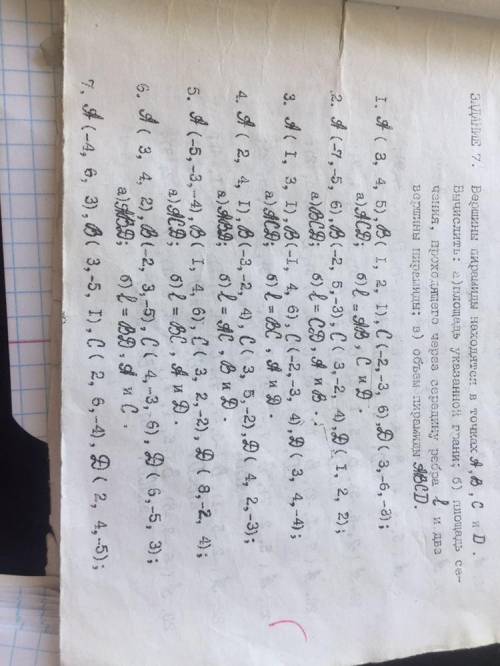 ЗАДАНИЕ 7. Вершины пирамиды находятся в точках A, B, C и D.
Вычислить: а) площадь указанной грани; б) площадь се-
чения, проходящего через середину ребра l и два
вершины пирамиды; в) объем пирамиды ABCD.
1. A( 3, 4, 5), B( 1, 2, 1), C(-2,-3, 6), D( 3,-6,-3);
а) ACD; б) l = AB, C и D.
2. A(-7,-5, 6), B(-2, 5,-3), C( 3,-2, 4), D( 1, 2, 2);
а) BCD; б) l = CD, A и B.
3. A( 1, 3, 1), B(-1, 4, 6), C(-2,-3, 4), D( 3, 4,-4);
а) ACD; б) l = BC, A и D.
4. A( 2, 4, 1), B(-3,-2, 4), C( 3, 5,-2), D( 4, 2,-3);
а) ABD; б) l = AC, B и D.
5. A(-5,-3,-4), B( 1, 4, 6), C( 3, 2,-2), D( 8,-2, 4);
а) ACD; б) l = BC, A и D.
6. A( 3, 4, 2), B(-2, 3,-5), C( 4,-3, 6), D( 6,-5, 3);
а) ABD; б) l = BD, A и C.
7. A(-4, 6, 3), B( 3,-5, 1), C( 2, 6,-4), D( 2, 4,-5);